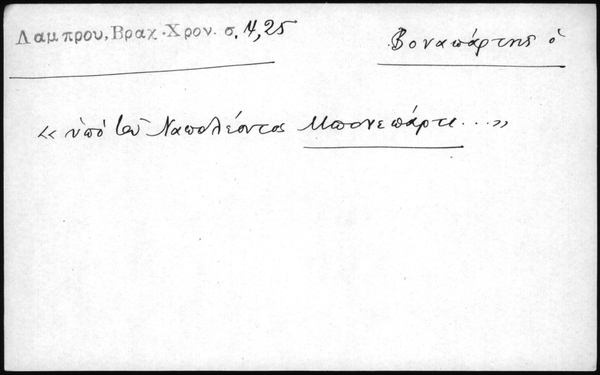 Λαμπρου, Βραχ. Χρον. σ. 4,25
Βοναπάρτης ὁ
« ὑπὸ τοῦ Ναπολέοντος Μπονεπάρτε ... »